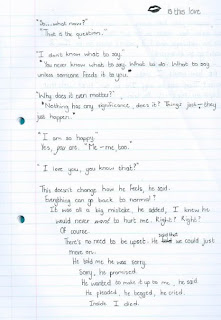 is this love
"So... what now?"
"That is the question."
"I don't know what to say"
"You never know what to say. What to do. What to say
unless someone feeds it to you."
"Why does it even matter?"
"Nothing has any significance, does it? Things just - they
just happen."
"I am so happy"
Yes, you are. "Me - me too."
"I love you, you know that?"
This doesn't change how he feels, he said.
Everything can go back to normal?
It was all a big mistake, he added, I knew he
would never want to hurt me. Right? Right?
Of course.
There's no need to be upset. He said that we could just
move on.
He told me he was sorry.
Sorry, he promised.
He wanted to make it up to me, he said
He pleaded, he begged, he cried.
Inside I died.